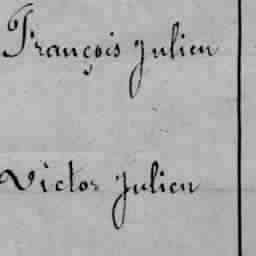 François Julien
Victor Julien